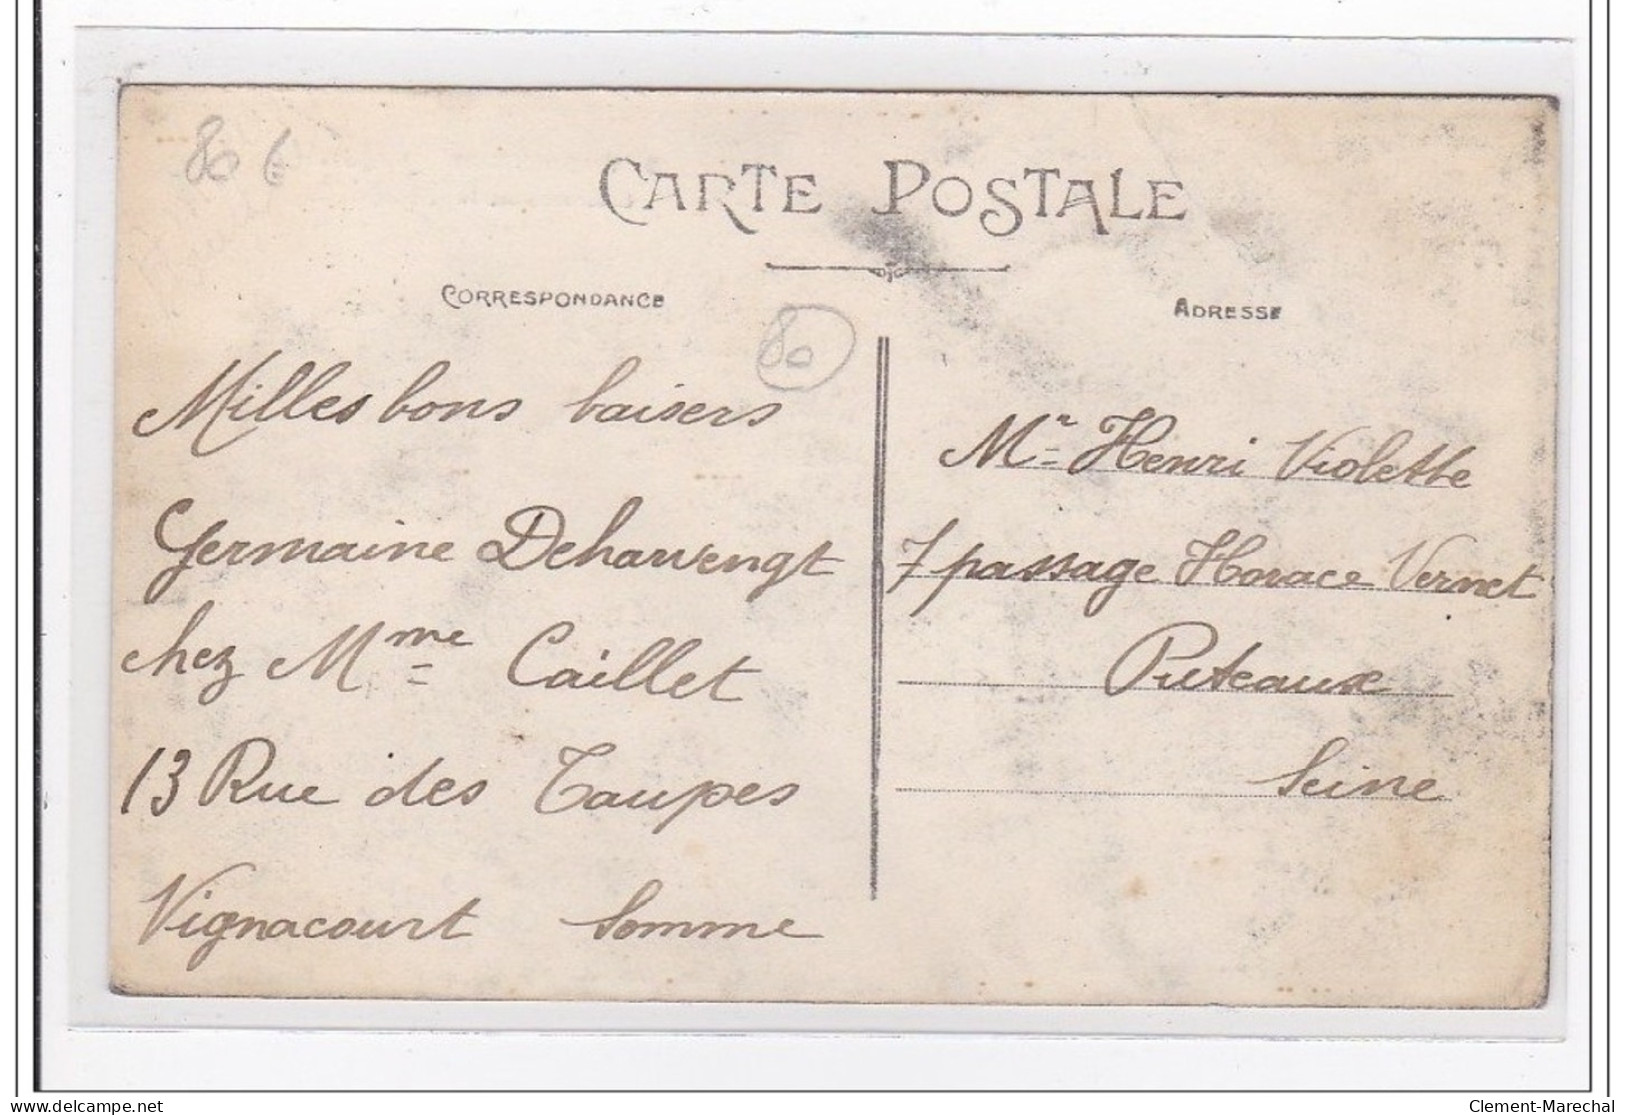 80 €
CARTE POSTALE
CORRESPONDANCE
80
Milles bons baisers
Germaine Deharvengt
chez Mme Caillet
13 Rue des Taupes
Vignacourt Somme
ADRESSE
Mr Henri Violette
7 passage Horace Vernet
Puteaux
Seine
delcampe.net
Clement-Marechal